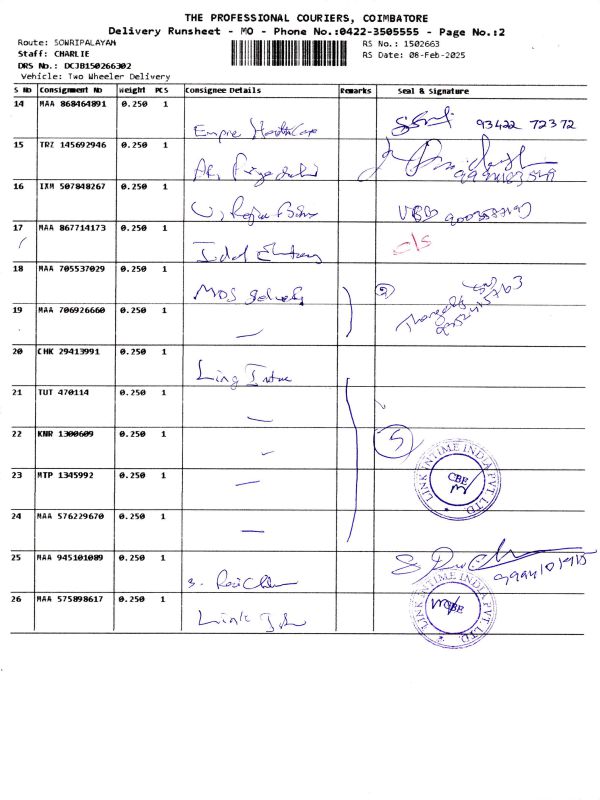 THE PROFESSIONAL COURIERS, COIMBATORE
Delivery Runsheet - MO - Phone No.:0422-3505555 - Page No.:2
Route: SOWRIPALAYAM
RS No.: 1502663
Staff: CHARLIE
RS Date: 08-Feb-2025
DRS No.: DCJB150266302
Vehicle: Two Wheeler Delivery
S No Consignment No Weight PCS Consignee Details Remarks Seal & Signature
14 MAA 868464891 0.250 1
Empire Healthcare 93422 72372
15 TRZ 145692946 0.250 1
16 IXM 507848267 0.250 1
17 MAA 867714173 0.250 1 c/s
Ideal
18 MAA 705537029 0.250 1
MDS
19 MAA 706926660 0.250 1
20 CHK 29413991 0.250 1
Link Intime
21 TUT 470114 0.250 1
22 KNR 1300609 0.250 1 5
LINK INTIME INDIA PVT. LTD.
CBE
23 MTP 1345992 0.250 1
24 MAA 576229670 0.250 1
25 MAA 945101089 0.250 1
26 MAA 575898617 0.250 1
LINK INTIME INDIA PVT. LTD.
CBE
Link